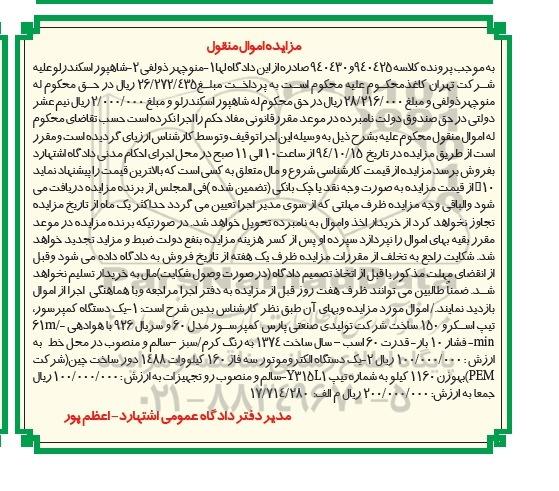 مزایده اموال منقول
به موجب پرونده کلاسه ۹۴۰۴۲۵ و ۹۴۰۴۳۰ صادره از این دادگاه لها ۱- منوچهر ذولفی ۲- شاهپور اسکندرلو علیه
شرکت تهران کاغذ محکوم علیه محکوم است به پرداخت مبلغ ۲۶/۲۷۲/۴۳۵ ریال در حق محکوم له
منوچهر ذولفی و مبلغ ۲۸/۲۱۶/۰۰۰ ریال در حق محکوم له شاهپور اسکندرلو و مبلغ ۲/۰۰۰/۰۰۰ ریال نیم عشر
دولتی در حق صندوق دولت نامبرده در موعد مقرر قانونی مفاد حکم را اجرا نکرده است حسب تقاضای محکوم
له اموال منقول محکوم علیه بشرح ذیل به وسیله این اجرا توقیف و توسط کارشناس ارزیابی گردیده است و مقرر
است از طریق مزایده در تاریخ ۹۴/۱۰/۱۵ از ساعت ۱۰ الی ۱۱ صبح در محل اجرای احکام مدنی دادگاه اشتهارد
بفروش برسد مزایده از قیمت کارشناسی شروع و مال متعلق به کسی است که بالاترین قیمت را پیشنهاد نماید
۱۰٪ از قیمت مزایده به صورت وجه نقد یا چک بانکی (تضمین شده) فی المجلس از برنده مزایده دریافت می
شود والباقی وجه مزایده ظرف مهلتی که از سوی مدیر اجرا تعیین می گردد حداکثر یک ماه از تاریخ مزایده
تجاوز نخواهد کرد از خریدار اخذ و اموال به نامبرده تحویل خواهد شد. در صورتیکه برنده مزایده در موعد
مقرر بقیه بهای اموال را نپردازد سپرده او پس از کسر هزینه مزایده بنفع دولت ضبط و مزاید تجدید خواهد
شد. شکایت راجع به تخلف از مقررات مزایده ظرف یک هفته از تاریخ فروش به دادگاه داده می شود وقبل
از انقضای مهلت مذکور یا قبل از اتخاذ تصمیم دادگاه (در صورت وصول شکایت) مال به خریدار تسلیم نخواهد
شد. ضمنا طالبین می توانند ظرف هفت روز قبل از مزایده به دفتر اجرا مراجعه وبا هماهنگی اجرا از اموال
بازدید نمایند. / اموال مورد مزایده وبهای آن طبق نظر کارشناس بدین شرح است: ۱- یک دستگاه کمپرسور،
تیپ اسکرو ۱۵۰ ساخت شرکت تولیدی صنعتی پارس کمپرسور مدل ۶۰ و سریال ۹۲۶ با هوادهی -/۶۱m
min- فشار ۱۰ بار- قدرت ۶۰ اسب - سال ساخت ۱۳۷۴ به رنگ کرم/سبز -سالم و منصوب در محل خط به
ارزش: ۱۰۰/۰۰۰/۰۰۰ ریال ۲- یک دستگاه الکتروموتور سه فاز ۱۶۰ کیلووات ۱۴۸۸ دور ساخت چین (شرکت
PEM) بوزن ۱۱۶۰ کیلو به شماره تیپ Y۳۱۵L۱- سالم و منصوب رو تجهیزات به ارزش: ۱۰۰/۰۰۰/۰۰۰ ریال
جمعا به ارزش: ۲۰۰/۰۰۰/۰۰۰ ریال م الف: ۱۷/۷۱۴/۲۸۰
مدیر دفتر دادگاه عمومی اشتهارد - اعظم پور